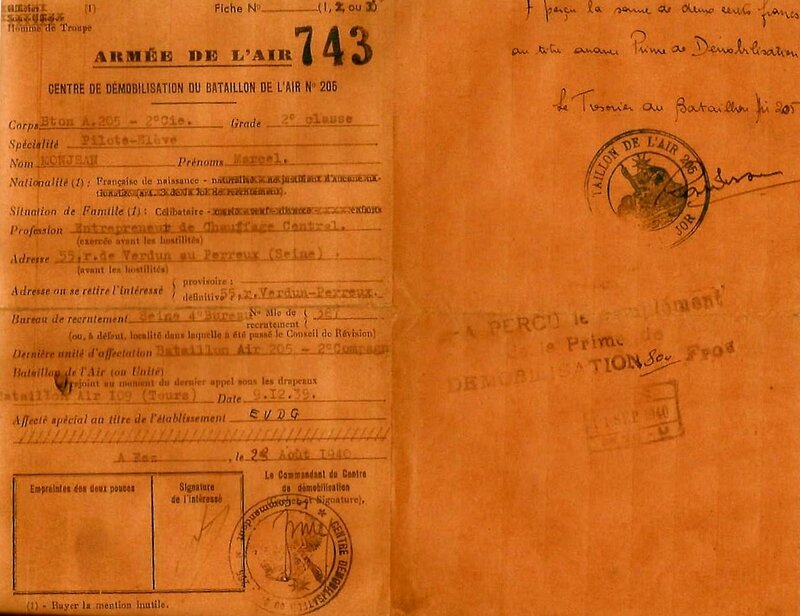 (1) Fiche N° (1, 2, ou 3)
Homme de Troupe
ARMÉE DE L'AIR 743
CENTRE DE DÉMOBILISATION DU BATAILLON DE L'AIR N° 205
Corps Bton A.205 - 2°Cie. Grade 2° classe
Spécialité Pilote-Elève
Nom MONJEAN Prénoms Marcel.
Nationalité (1) : Française de naissance -
Situation de Famille (1) : Célibataire -
Profession Entrepreneur de Chauffage Central.
(exercée avant les hostilités)
Adresse 55,r.de Verdun au Perreux (Seine) .
(avant les hostilités)
Adresse ou se retire l'intéressé { provisoire :
définitive : 55,r.Verdun-Perreux.
Bureau de recrutement Seine 4°Bureau N° Mle de recrutement { 387
(ou, à défaut, localité dans laquelle a été passé le Conseil de Révision)
Dernière unité d'affectation Bataillon Air 205 - 2°Compagn
Bataillon de l'Air (ou Unité)
rejoint au moment du dernier appel sous les drapeaux
Bataillon Air 109 (Tours) Date 9.12.39.
Affecté spécial au titre de l'établissement EVDG
A Fez, le 28 Août 1940
Empreintes des deux pouces
Signature
de l'intéressé
Le Commandant du Centre
de démobilisation
(Cachet et Signature),
CENTRE DÉMOBILISATEUR
Le Commandant
(1) - Rayer la mention inutile.
A perçu la somme de deux cents francs
au titre avance Prime de Démobilisation
Le Trésorier du Bataillon Air 205
TAILLON DE L'AIR 205
JOR
A PERÇU le complément
Prime de
DEMOBILISATION 800 Frcs
SEP 1940